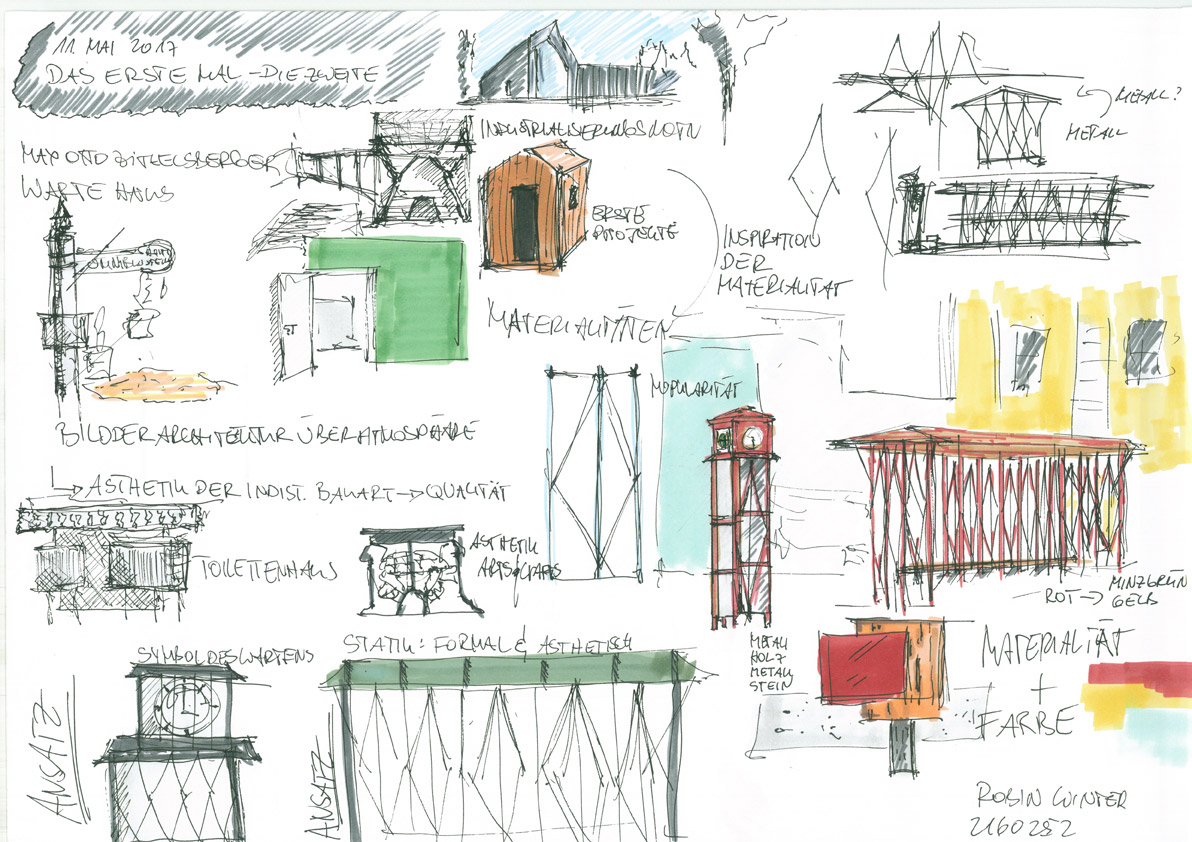 11. MAI 2017
DAS ERSTE MAL - DIE ZWEITE
MAX OTTO ZITZELSBERGER
WARTE HAUS
INDUSTRIALISIERUNGSMOTIV
ERSTE
PROJEKTE
METALL?
METALL
INSPIRATION
DER
MATERIALITÄT
MATERIALITÄTEN
BILDDERARCHITEKTUR ÜBER ATMOSPHÄRE
ÄSTHETIK DER INDIST. BAUART → QUALITÄT
TOILETTENHAUS
ÄSTHETIK
ROT → MINZGRÜN
GELB
SYMBOL DES WARTENS
STATIK: FORMAL & ÄSTHETISCH
METALL
HOLZ
METALL
STEIN
MATERIALITÄT
+
FARBE
ANSATZ
ANSATZ
ROBIN WINTER
2160252